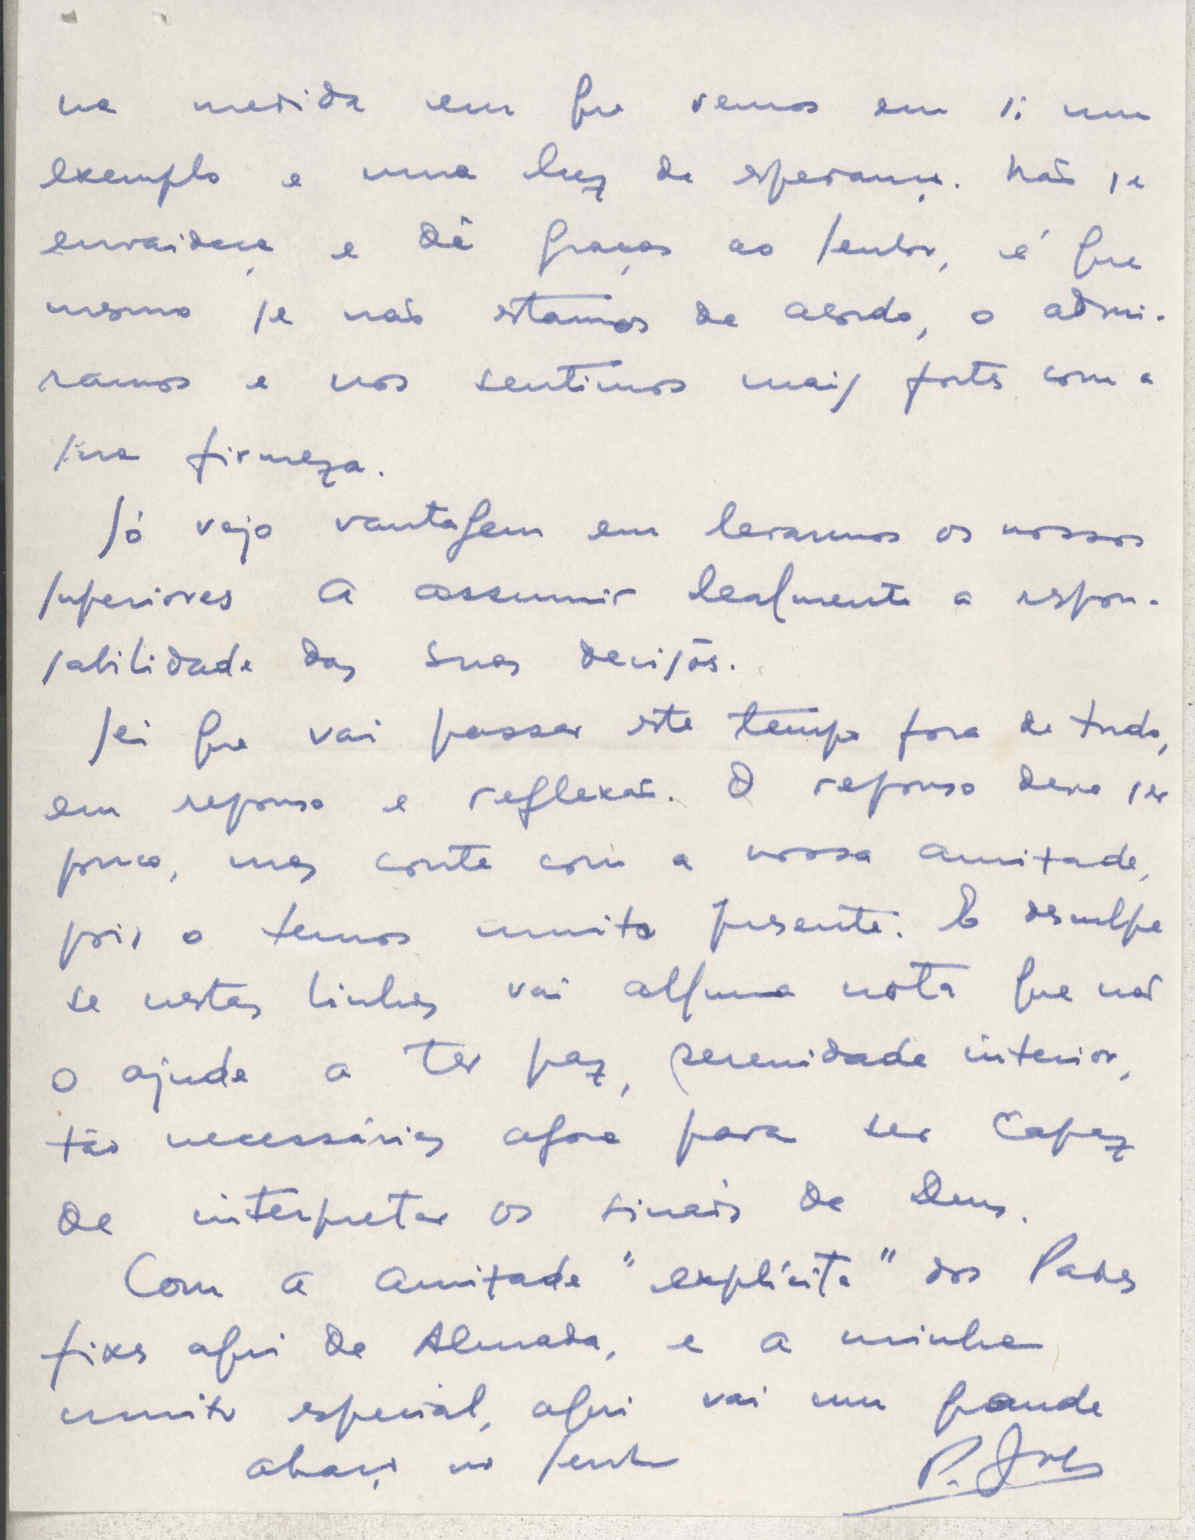 na medida em que vemos em si um
exemplo e uma luz de esperança. Não se
envaideça e dê graças ao Senhor, é que
mesmo se não estamos de acordo, o admi-
ramos e nos sentimos mais fortes com a
sua firmeza.
Só vejo vantagem em levarmos os nossos
superiores a assumir lealmente a respon-
sabilidade das suas decisões.
Sei que vai passar este tempo fora de tudo,
em repouso e reflexão. O repouso deve ser
pouco, mas conte com a nossa amizade,
pois o temos muito presente. E desculpe
se nestas linhas vai alguma nota que não
o ajude a ter paz, serenidade interior,
tão necessárias agora para ser capaz
de interpretar os sinais de Deus.
Com a amizade "explícita" dos Padres
fixes aqui de Almada, e a minha
muito especial, aqui vai um grande
abraço no Senhor
P.